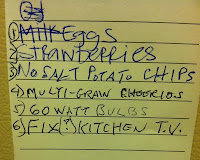 1) Milk Eggs
2) Stranberries
3) No SALT POTATO CHIPS
4) MULTI-GRAW CHEERIOS
5) 60 WATT BULBS
6) FIX(?) KITCHEN T.V.